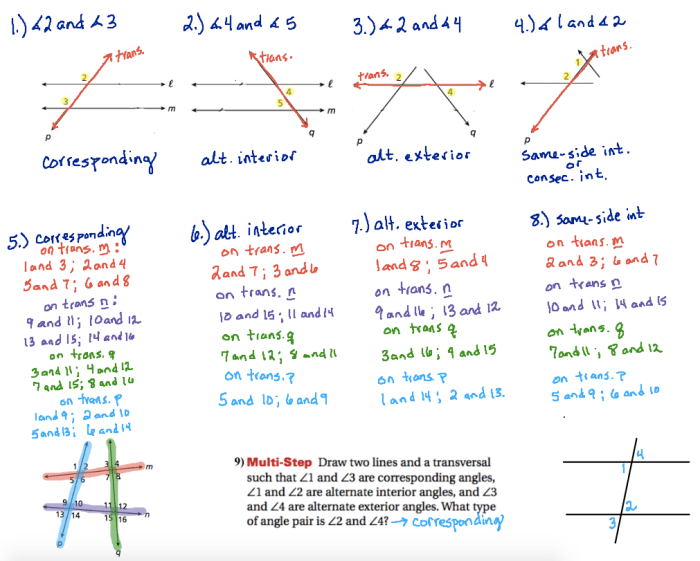 1.) ∡2 and ∡3
2.) ∡4 and ∡5
3.) ∡2 and ∡4
4.) ∡1 and ∡2
trans.
2
3
ℓ
m
p
trans.
4
5
ℓ
m
q
trans.
2
4
ℓ
p
q
trans.
1
2
p
corresponding
alt. interior
alt. exterior
same-side int.
or
consec. int.
5.) corresponding
on trans. m:
1 and 3; 2 and 4
5 and 7; 6 and 8
on trans n:
9 and 11; 10 and 12
13 and 15; 14 and 16
on trans. q
3 and 11; 4 and 12
7 and 15; 8 and 16
on trans. p
1 and 9; 2 and 10
5 and 13; 6 and 14
6.) alt. interior
on trans. m
2 and 7; 3 and 6
on trans. n
10 and 15; 11 and 14
on trans. q
7 and 12; 8 and 11
on trans. p
5 and 10; 6 and 9
7.) alt. exterior
on trans. m
1 and 8; 5 and 4
on trans. n
9 and 16; 13 and 12
on trans q
3 and 16; 4 and 15
on trans p
1 and 14; 2 and 13.
8.) same-side int
on trans. m
2 and 3; 6 and 7
on trans n
10 and 11; 14 and 15
on trans. q
7 and 11; 8 and 12
on trans. p
5 and 9; 6 and 10
1 2 3 4 m
5 6 7 8
9 10 11 12
13 14 15 16 n
p
q
9) Multi-Step Draw two lines and a transversal
such that ∠1 and ∠3 are corresponding angles,
∠1 and ∠2 are alternate interior angles, and ∠3
and ∠4 are alternate exterior angles. What type
of angle pair is ∠2 and ∠4? → corresponding
4
1
2
3